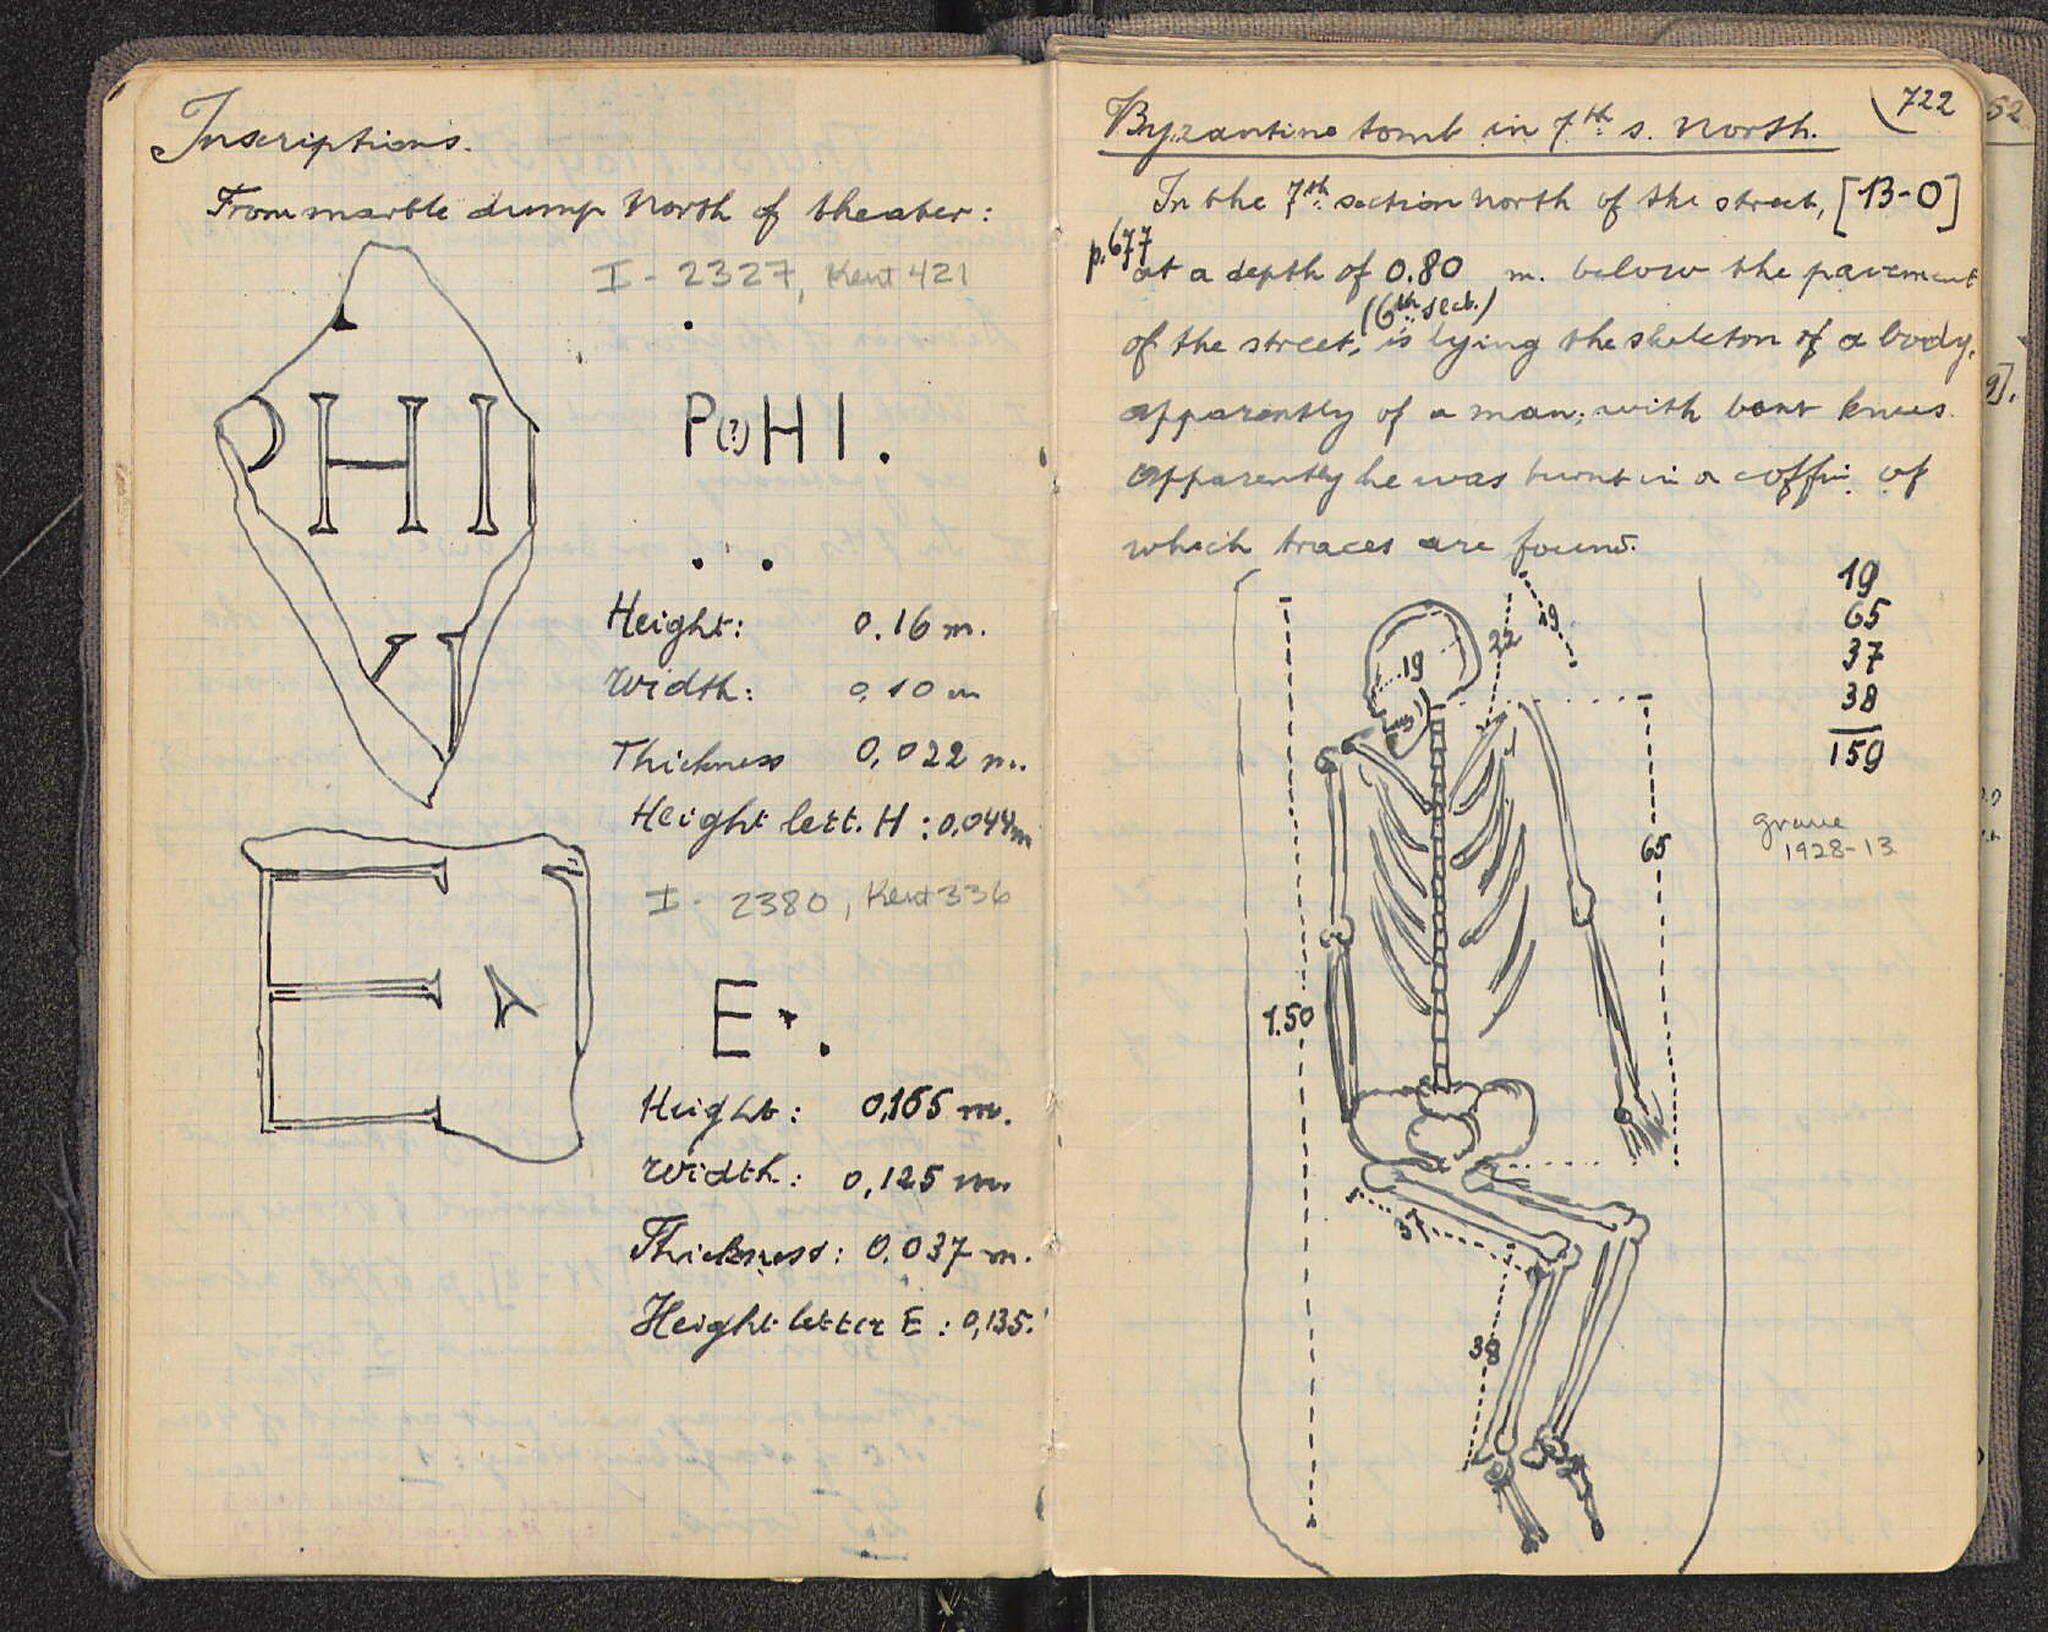 Inscriptions.
From marble dump North of theater:
I - 2327, Kent 421
PHI
P(?)HI.
Height: 0.16 m.
Width: 0,10 m
Thickness 0,022 m.
Height lett. H : 0,044m
I - 2380, Kent 336
E
E
Height: 0,165 m.
Width: 0,125 m.
Thickness: 0.037 m.
Height letter E : 0,135.
722
Byzantine tomb in 7th s. North.
In the 7th section north of the street, [13-0]
p.677
at a depth of 0.80 m. below the pavement
(6th sect.)
of the street, is lying the skeleton of a body,
apparently of a man; with bent knees.
Apparently he was burnt in a coffin of
which traces are found.
19
65
37
38
159
19
22
19
65
grave
1928-13
1.50
37
38
52
9].